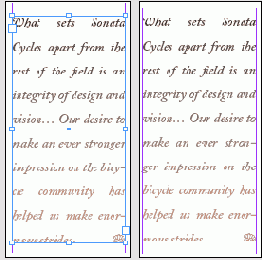 What sets Sonata
Cycles apart from the
rest of the field is an
integrity of design and
vision... Our desire to
make an ever stronger
impression on the bicy-
ce community has
helped us make ener-
What sets Sonata
Cycles apart from the
rest of the field is an
integrity of design and
vision... Our desire to
make an ever stron-
ger impression on the
bicycle community has
helped us make ener-